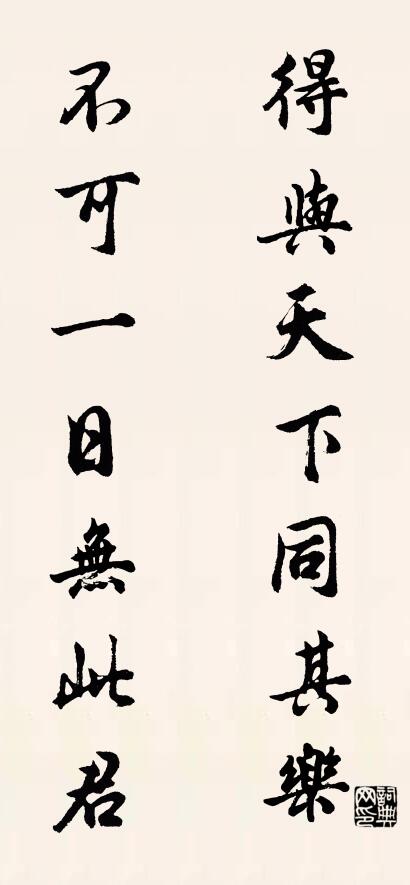 得與天下同其樂
不可一日無此君
詞典網印